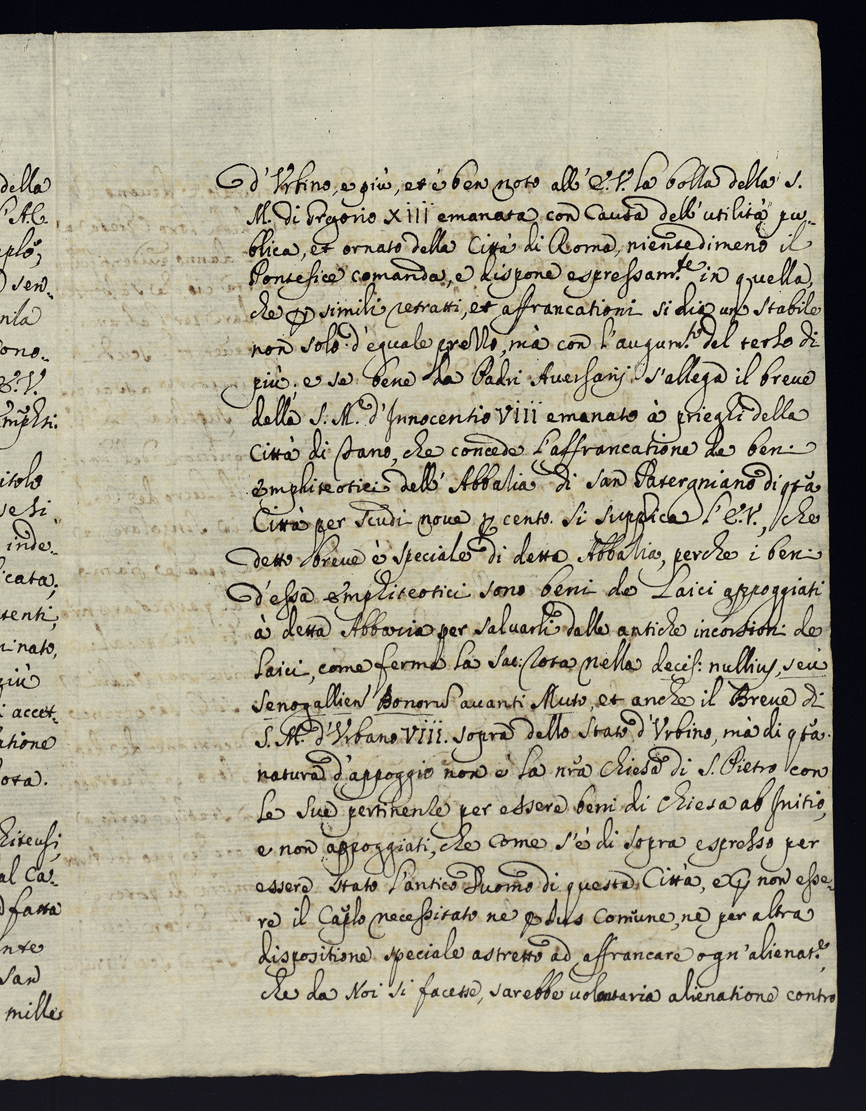 della
l'Ab.
sen-
nla
ono-
E.V.
itolo
inde-
icata,
tenti,
minato,
più
i accet-
atione
ota.
hiteusi,
al Ca-
fatta
nte
San
mille
d'Urbino, e più, et è ben noto all'E.V. la bolla della S.
M. di Grgorio XIII emanata con Causa dell'utilità pu-
blica, et ornato della Città di Roma, nientedimeno il
Pontefice comanda, e dispone espressam.te in quella,
che p simili retratti, et affrancationi si dia un stabile
non solo d'eguale prezzo, mà con l'augum.to del terzo di
più, e se bene da Padri Auersarij s'allega il breue
della S. M. d'Innocentio VIII emanato à prieghi della
Città di Fano, che concede l'affrancatione de beni
emphiteotici dell'Abbatia di San Paterniano di qta
Città per scudi noue p cento. Si supplica l'E.V., che
detto breue è speciale di detta Abbatia, perche i beni
d'essa emphiteotici sono beni de Laici appoggiati
à detta Abbatia per saluarli dalle antiche incorsioni de
laici, come ferma la Sac: rota nella decis: nullius, seu
Senogallien Bonorum auanti Muto, et anche il Breue di
S. M. d'Urbano VIII. sopra dello Stato d'Urbino, mà di qta
natura d'appoggio non è la nra Chiesa di S. Pietro con
le sue pertinenze per essere beni di Chiesa ab Initio,
e non appoggiati, che come s'è di sopra espresso per
essere stato l'antico Duomo di questa Città, e p non esse-
re il Caplo necessitato ne p Ius Comune, ne per altra
dispositione speciale astretto ad affrancare ogn'alienat.e,
che da Noi si facesse, sarebbe uolontaria alienatione contro